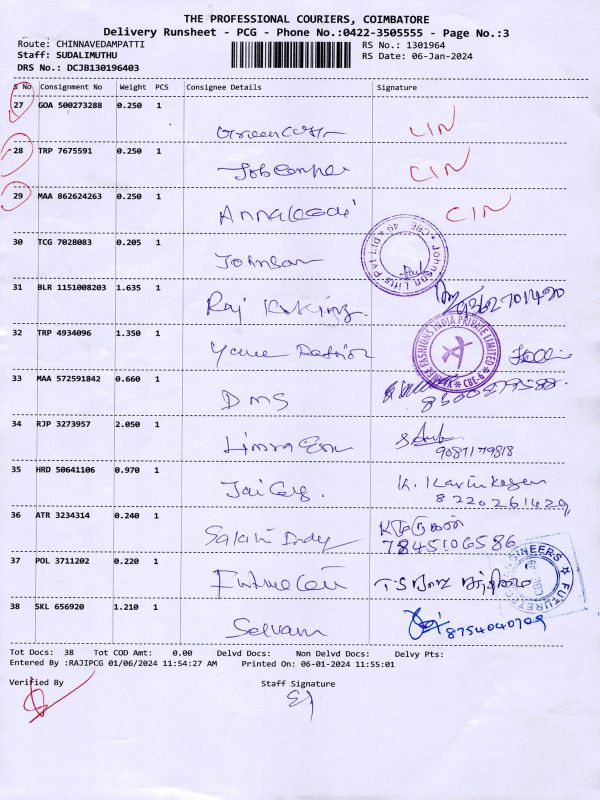 THE PROFESSIONAL COURIERS, COIMBATORE
Delivery Runsheet - PCG - Phone No.:0422-3505555 - Page No.:3
Route: CHINNAVEDAMPATTI RS No.: 1301964
Staff: SUDALIMUTHU RS Date: 06-Jan-2024
DRS No.: DCJB130196403
S No Consignment No Weight PCS Consignee Details Signature
27 GOA 500273288 0.250 1
LIN
28 TRP 7675591 0.250 1
CIN
29 MAA 862624263 0.250 1
CIN
30 TCG 7028083 0.205 1
Johnson
Johnson Lifts Pvt Ltd CBE 49
31 BLR 1151008203 1.635 1
Raj
32 TRP 4934096 1.350 1
FASHIONS INDIA PRIVATE LIMITED CBE-6
33 MAA 572591842 0.660 1
DMS
34 RJP 3273957 2.050 1
9087179818
35 HRD 50641106 0.970 1
K. Karthikeyan
8220261429
36 ATR 3234314 0.240 1
7845106586
37 POL 3711202 0.220 1
ENGINEERS
38 SKL 656920 1.210 1
Selvam 8754040709
Tot Docs: 38 Tot COD Amt: 0.00 Delvd Docs: Non Delvd Docs: Delvy Pts:
Entered By :RAJIPCG 01/06/2024 11:54:27 AM Printed On: 06-01-2024 11:55:01
Verified By Staff Signature